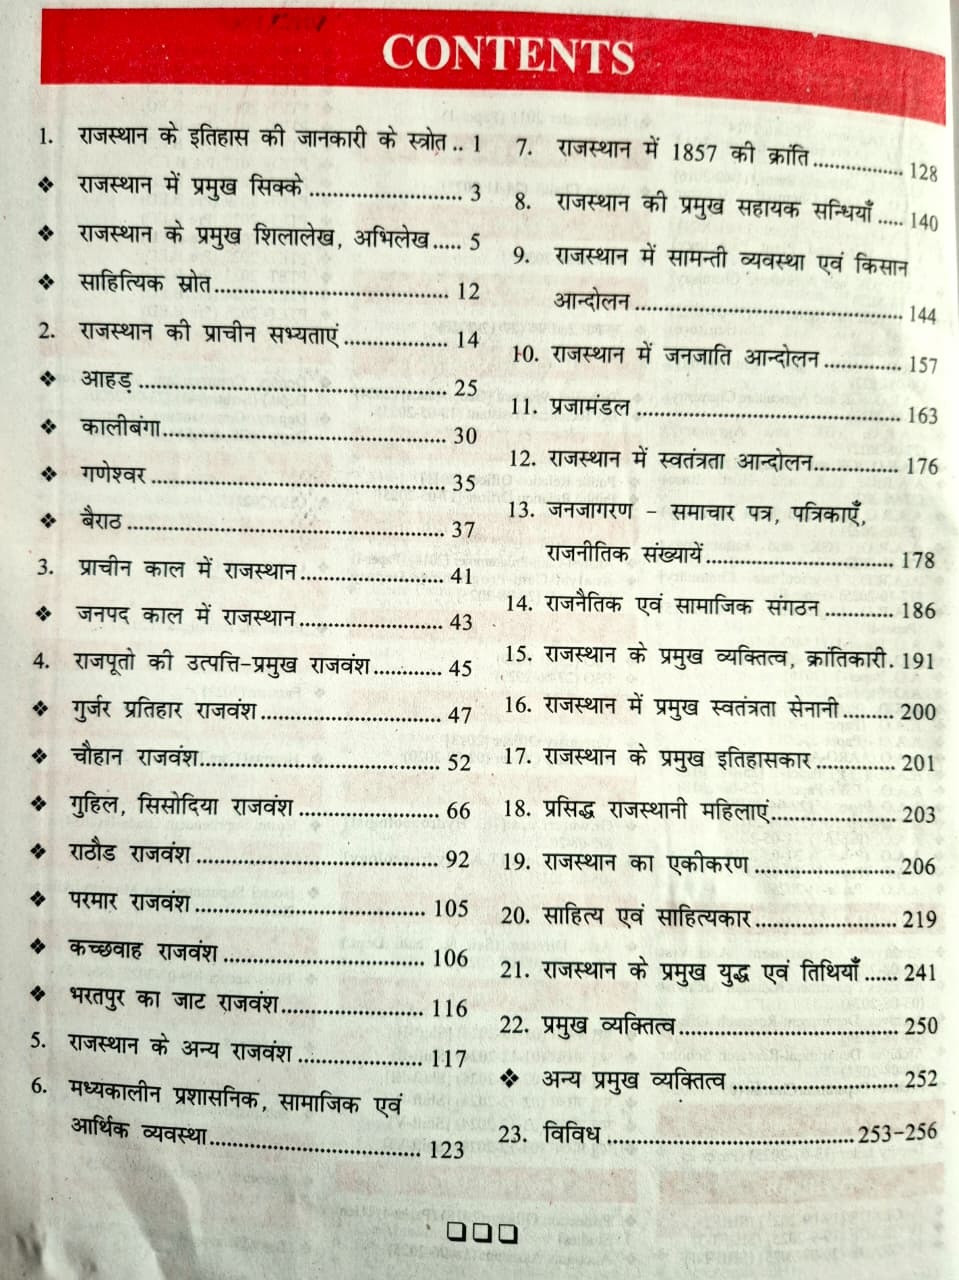 CONTENTS
1. राजस्थान के इतिहास की जानकारी के स्त्रोत .. 1
❖ राजस्थान में प्रमुख सिक्के ................................ 3
❖ राजस्थान के प्रमुख शिलालेख, अभिलेख..... 5
❖ साहित्यिक स्रोत........................................ 12
2. राजस्थान की प्राचीन सभ्यताएं .................. 14
❖ आहड़ .................................................... 25
❖ कालीबंगा................................................ 30
❖ गणेश्वर .................................................. 35
❖ बैराठ ..................................................... 37
3. प्राचीन काल में राजस्थान......................... 41
❖ जनपद काल में राजस्थान......................... 43
4. राजपूतो की उत्पत्ति-प्रमुख राजवंश............ 45
❖ गुर्जर प्रतिहार राजवंश............................... 47
❖ चौहान राजवंश......................................... 52
❖ गुहिल, सिसोदिया राजवंश ........................ 66
❖ राठौड राजवंश ......................................... 92
❖ परमार राजवंश ....................................... 105
❖ कच्छवाह राजवंश .................................. 106
❖ भरतपुर का जाट राजवंश......................... 116
5. राजस्थान के अन्य राजवंश ...................... 117
6. मध्यकालीन प्रशासनिक, सामाजिक एवं
आर्थिक व्यवस्था..................................... 123
7. राजस्थान में 1857 की क्रांति ................ 128
8. राजस्थान की प्रमुख सहायक सन्धियाँ ..... 140
9. राजस्थान में सामन्ती व्यवस्था एवं किसान
आन्दोलन .............................................. 144
10. राजस्थान में जनजाति आन्दोलन .............. 157
11. प्रजामंडल .............................................. 163
12. राजस्थान में स्वतंत्रता आन्दोलन............... 176
13. जनजागरण - समाचार पत्र, पत्रिकाएँ,
राजनीतिक संख्यायें ................................. 178
14. राजनैतिक एवं सामाजिक संगठन ............. 186
15. राजस्थान के प्रमुख व्यक्तित्व, क्रांतिकारी. 191
16. राजस्थान में प्रमुख स्वतंत्रता सेनानी ......... 200
17. राजस्थान के प्रमुख इतिहासकार .............. 201
18. प्रसिद्ध राजस्थानी महिलाएं...................... 203
19. राजस्थान का एकीकरण ......................... 206
20. साहित्य एवं साहित्यकार ......................... 219
21. राजस्थान के प्रमुख युद्ध एवं तिथियाँ ...... 241
22. प्रमुख व्यक्तित्व....................................... 250
❖ अन्य प्रमुख व्यक्तित्व ............................. 252
23. विविध ............................................253-256